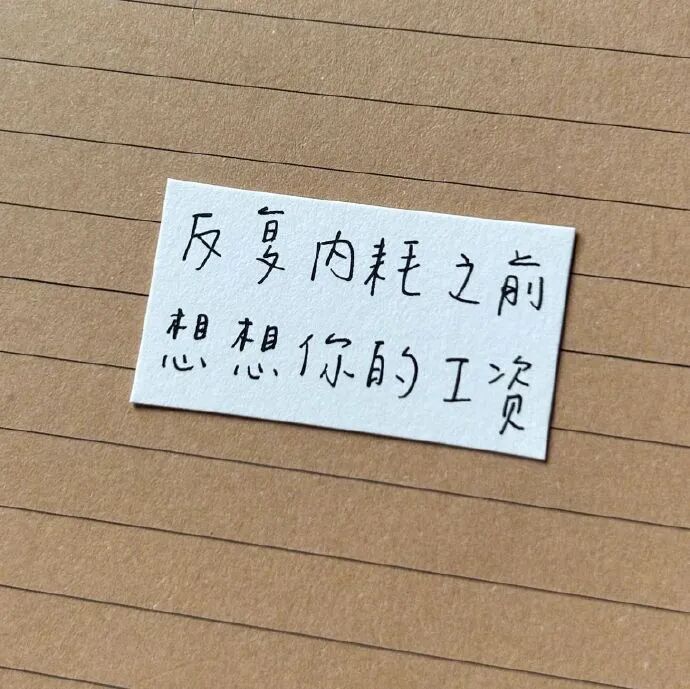 反复内耗之前
想想你的工资